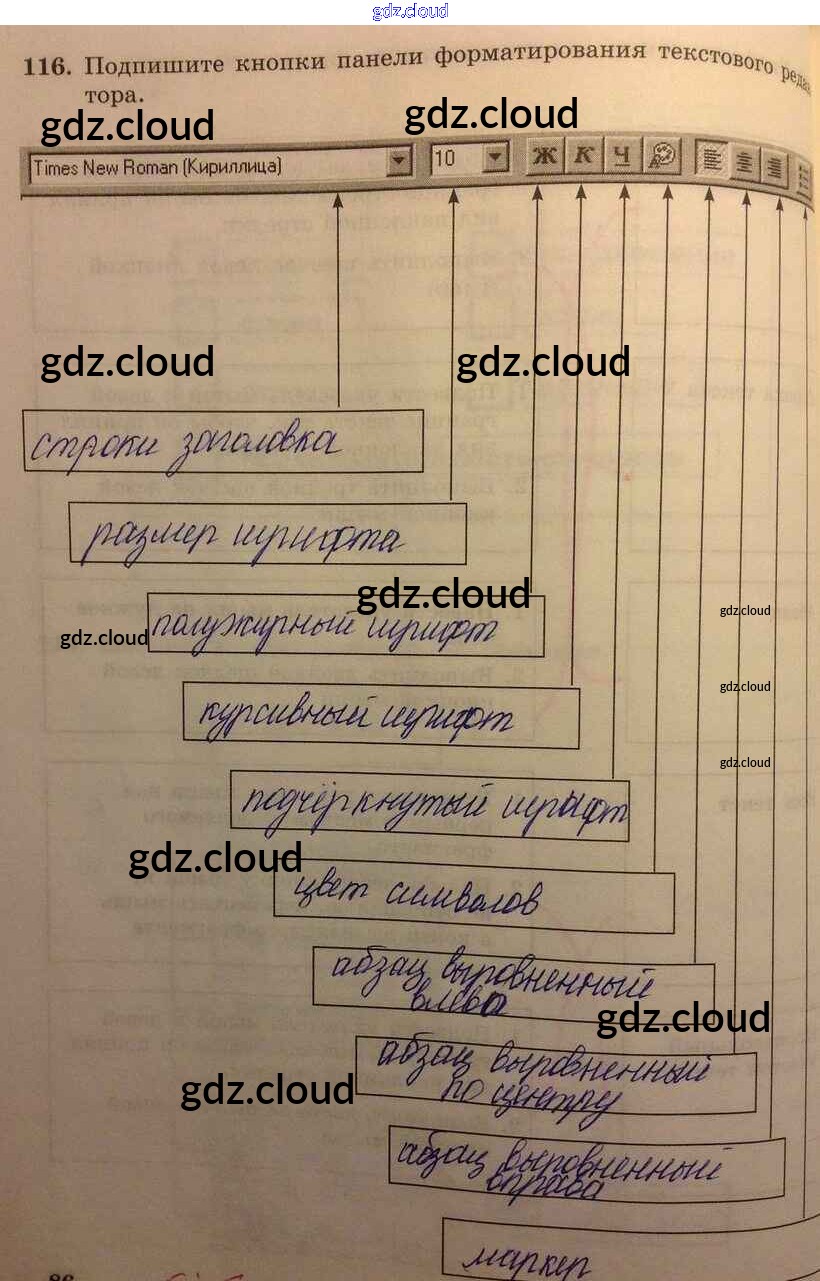 gdz.cloud
116. Подпишите кнопки панели форматирования текстового редак
тора.
gdz.cloud
gdz.cloud
Times New Roman (Кириллица) 10 Ж К Ч
gdz.cloud
gdz.cloud
строки заголовка
размер шрифта
gdz.cloud
gdz.cloud
gdz.cloud
полужирный шрифт
gdz.cloud
курсивный шрифт
gdz.cloud
подчёркнутый шрифт
gdz.cloud
цвет символов
абзац выровненный
влево
gdz.cloud
абзац выровненный
по центру
gdz.cloud
абзац выровненный
вправа
маркер
86